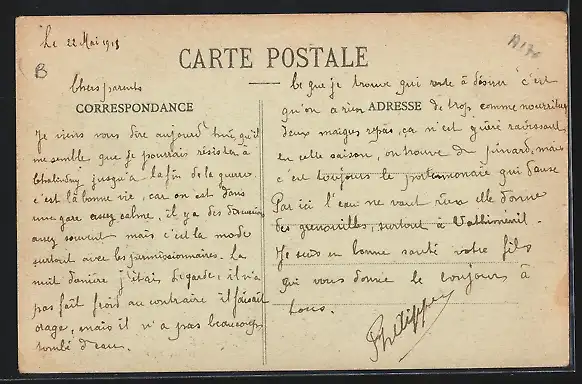 Le 22 Mai 1915
B
CARTE POSTALE
Chers parents
CORRESPONDANCE
Je viens vous dire aujourd'hui qu'il
me semble que je pourrais résister à
Chalindrey jusqu'à la fin de la guerre.
c'est la bonne vie, car on est dans
une gare assez calme, il y a des
assez souvent mais c'est la mode
surtout avec les permissionnaires. La
nuit dernière j'étais de garde, il n'a
pas fait froid au contraire il faisait
orage, mais il n'a pas beaucoup
tombé d'eau.
Ce que je trouve qui reste à désirer c'est
qu'on a rien ADRESSE de trop, comme nourriture
deux maigres repas, ça n'est guère ravissant
en cette saison, on trouve du pinard, mais
c'est toujours le portemonnaie qui danse
Par ici l'eau ne vaut rien elle donne
des grenouilles, surtout à Vathiménil.
Je suis en bonne santé votre fils
qui vous donne le bonjours à
tous.
Philippe